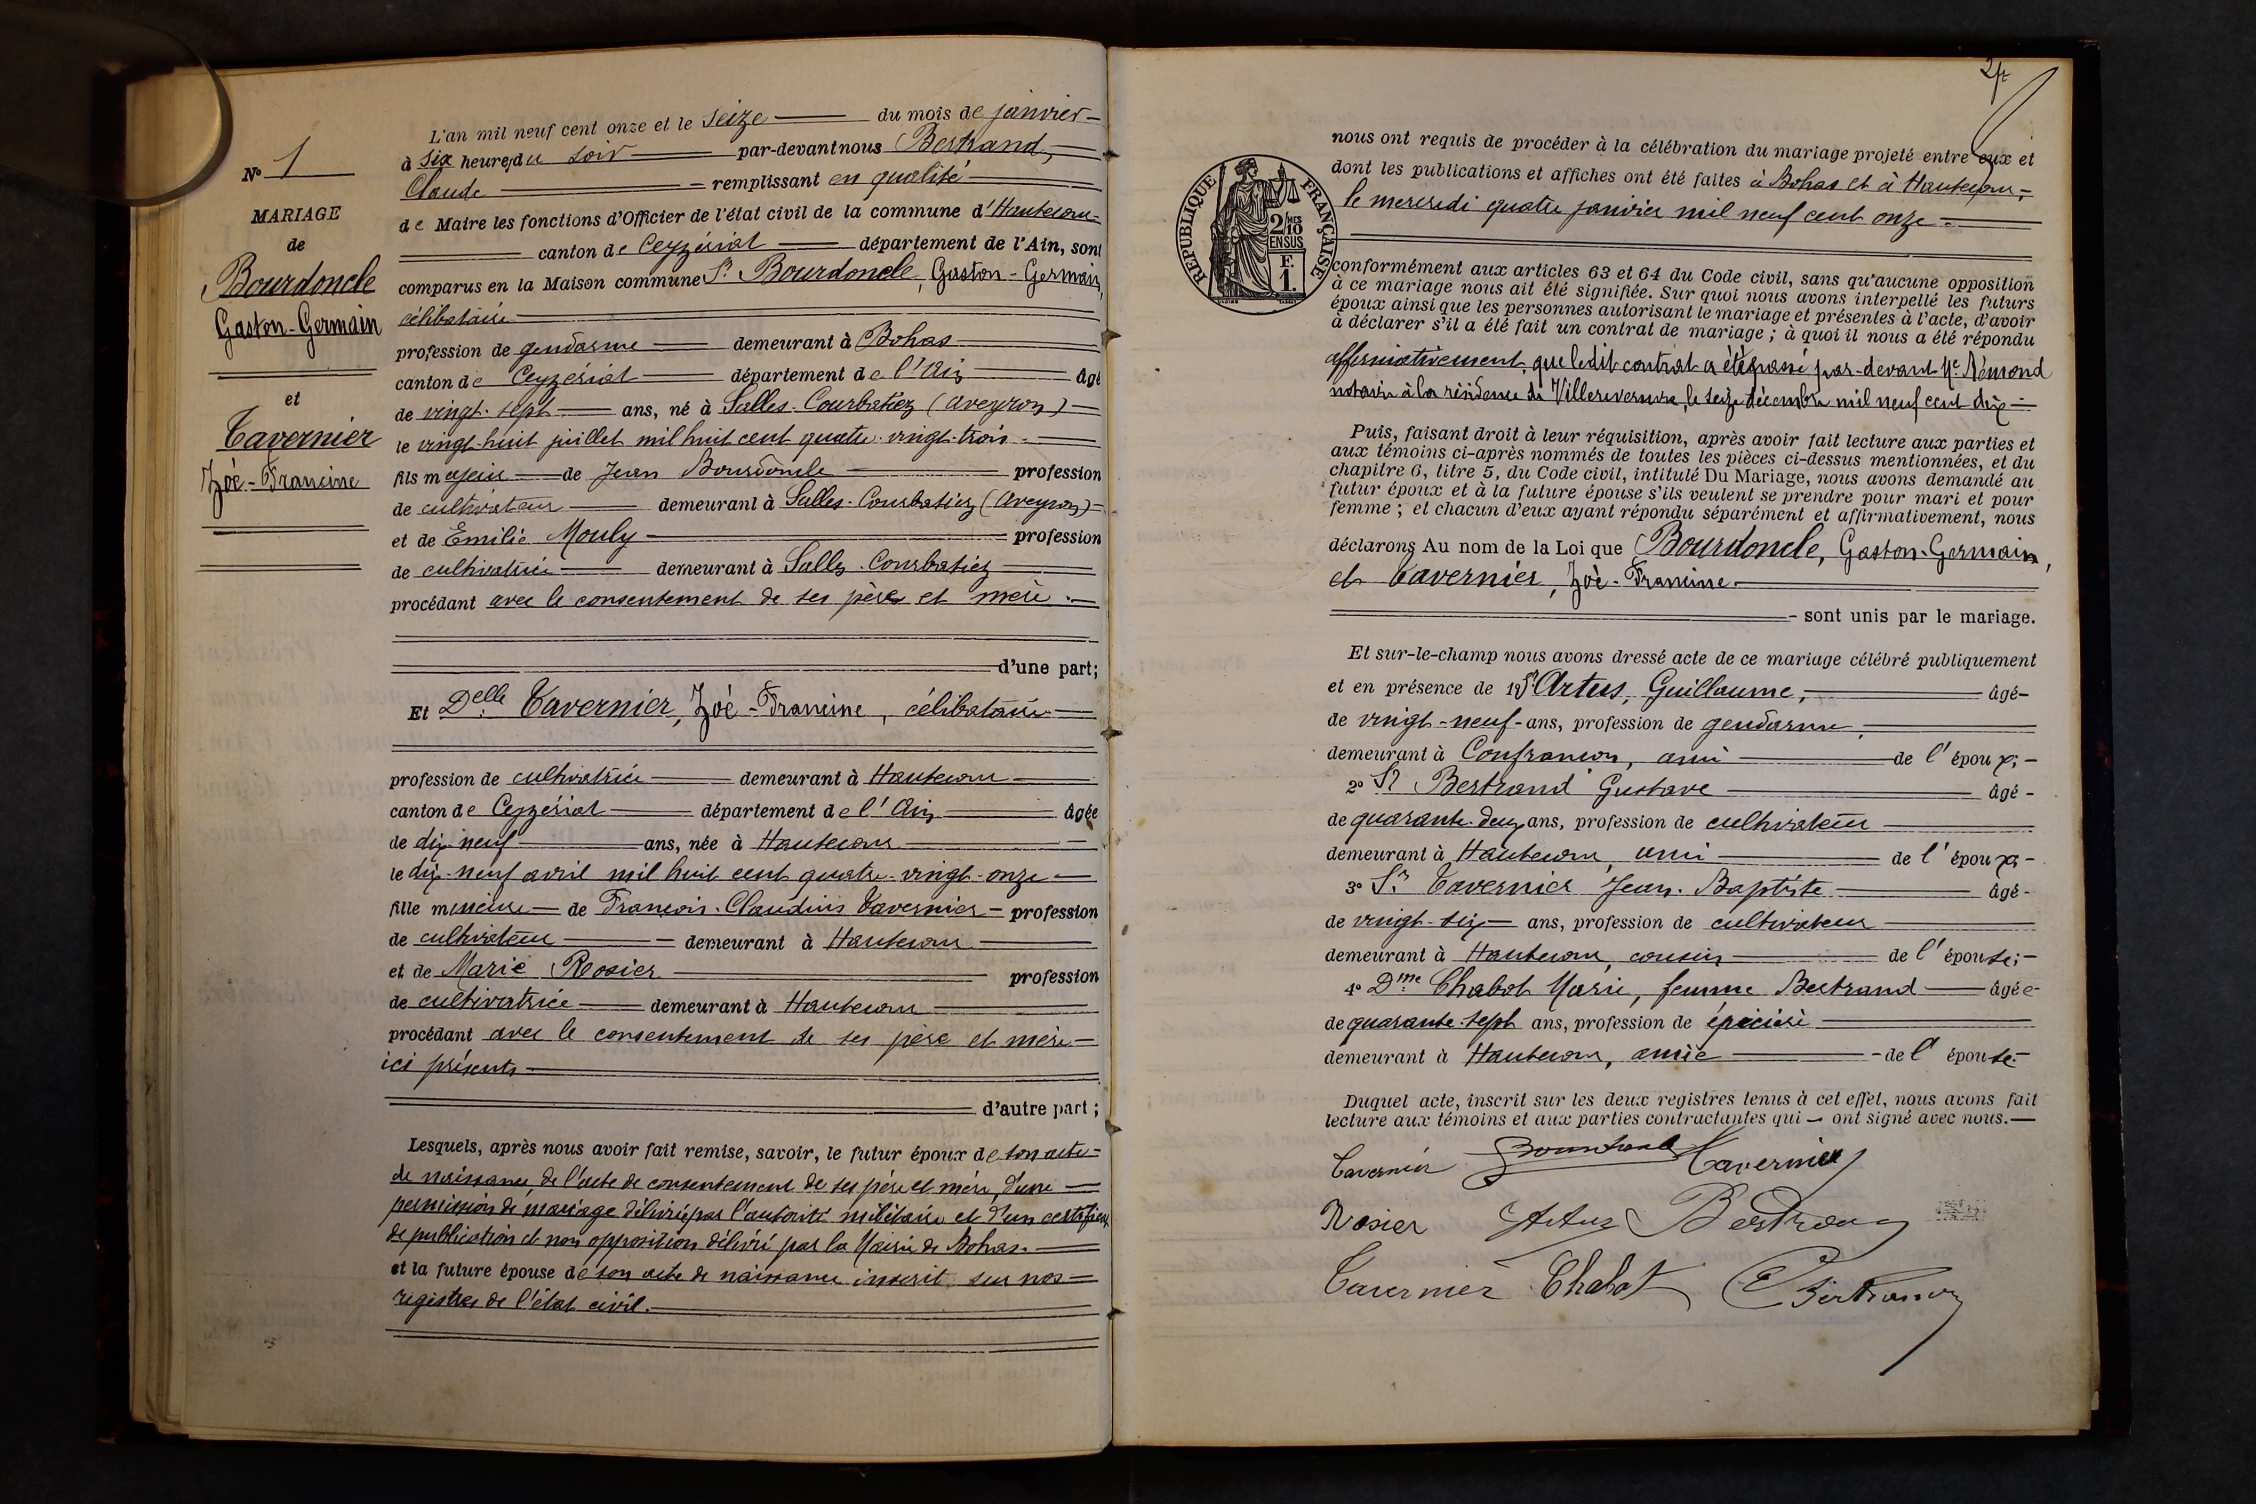 N° 1
MARIAGE
de
Bourdoncle
Gaston-Germain
et
Tavernier
Zoé-Francine
L'an mil neuf cent onze et le seize du mois de janvier
à six heures du soir par-devant nous Bertrand,
Claude remplissant en qualité
de Maire les fonctions d'Officier de l'état civil de la commune d'Hautecour
canton de Ceyzériat département de l'Ain, sont
comparus en la Maison commune Sr. Bourdoncle, Gaston-Germain,
célibataire
profession de gendarme demeurant à Bohas
canton de Ceyzériat département de l'Ain âgé
de vingt-sept ans, né à Salles-Courbatiez (Aveyron)
le vingt-huit juillet mil huit cent quatre-vingt-trois
fils majeur de Jean Bourdoncle profession
de cultivateur demeurant à Salles-Courbatiez (Aveyron)
et de Emilie Mouly profession
de cultivatrice demeurant à Salles-Courbatiez
procédant avec le consentement de ses père et mère.
d'une part;
Et Delle Tavernier, Zoé-Francine, célibataire
profession de cultivatrice demeurant à Hautecour
canton de Ceyzériat département de l'Ain âgée
de dix-neuf ans, née à Hautecour
le dix-neuf avril mil huit cent quatre-vingt-onze
fille mineure de François-Claudius Tavernier profession
de cultivateur demeurant à Hautecour
et de Marie Rosier profession
de cultivatrice demeurant à Hautecour
procédant avec le consentement de ses père et mère
ici présents
d'autre part;
Lesquels, après nous avoir fait remise, savoir, le futur époux de son acte
de naissance de l'acte de consentement de ses père et mère, d'une
permission de mariage délivrée par l'autorité militaire et d'un certificat
de publication et non opposition délivré par la Mairie de Bohas.
et la future épouse de son acte de naissance inscrit sur nos
registres de l'état civil.
2
RÉPUBLIQUE FRANÇAISE
2/10 EN SUS
F. 1.
nous ont requis de procéder à la célébration du mariage projeté entre eux et
dont les publications et affiches ont été faites à Bohas et à Hautecour,
le mercredi quatre janvier mil neuf cent onze
conformément aux articles 63 et 64 du Code civil, sans qu'aucune opposition
à ce mariage nous ait été signifiée. Sur quoi nous avons interpellé les futurs
époux ainsi que les personnes autorisant le mariage et présentes à l'acte, d'avoir
à déclarer s'il a été fait un contrat de mariage; à quoi il nous a été répondu
affirmativement, que ledit contrat a été passé par-devant Me Némond
notaire à la résidence de Villereversure, le seize décembre mil neuf cent dix
Puis, faisant droit à leur réquisition, après avoir fait lecture aux parties et
aux témoins ci-après nommés de toutes les pièces ci-dessus mentionnées, et du
chapitre 6, titre 5, du Code civil, intitulé Du Mariage, nous avons demandé au
futur époux et à la future épouse s'ils veulent se prendre pour mari et pour
femme; et chacun d'eux ayant répondu séparément et affirmativement, nous
déclarons Au nom de la Loi que Bourdoncle, Gaston-Germain,
et Tavernier, Zoé-Francine
sont unis par le mariage.
Et sur-le-champ nous avons dressé acte de ce mariage célébré publiquement
et en présence de 1° Sr Artus, Guillaume, âgé
de vingt-neuf ans, profession de gendarme,
demeurant à Confrançon, ami de l'époux;
2° Sr Bertrand Gustave âgé
de quarante-deux ans, profession de cultivateur
demeurant à Hautecour, ami de l'époux;
3° Sr Tavernier Jean-Baptiste âgé
de vingt-six ans, profession de cultivateur
demeurant à Hautecour, cousin de l'épouse;
4° Dme Chabot Marie, femme Bertrand âgée
de quarante-sept ans, profession de épicière
demeurant à Hautecour, amie de l'épouse
Duquel acte, inscrit sur les deux registres tenus à cet effet, nous avons fait
lecture aux témoins et aux parties contractantes qui ont signé avec nous.
Tavernier Bourdoncle Tavernier
Rosier Artus Bertrand
Tavernier Chabot C Bertrand